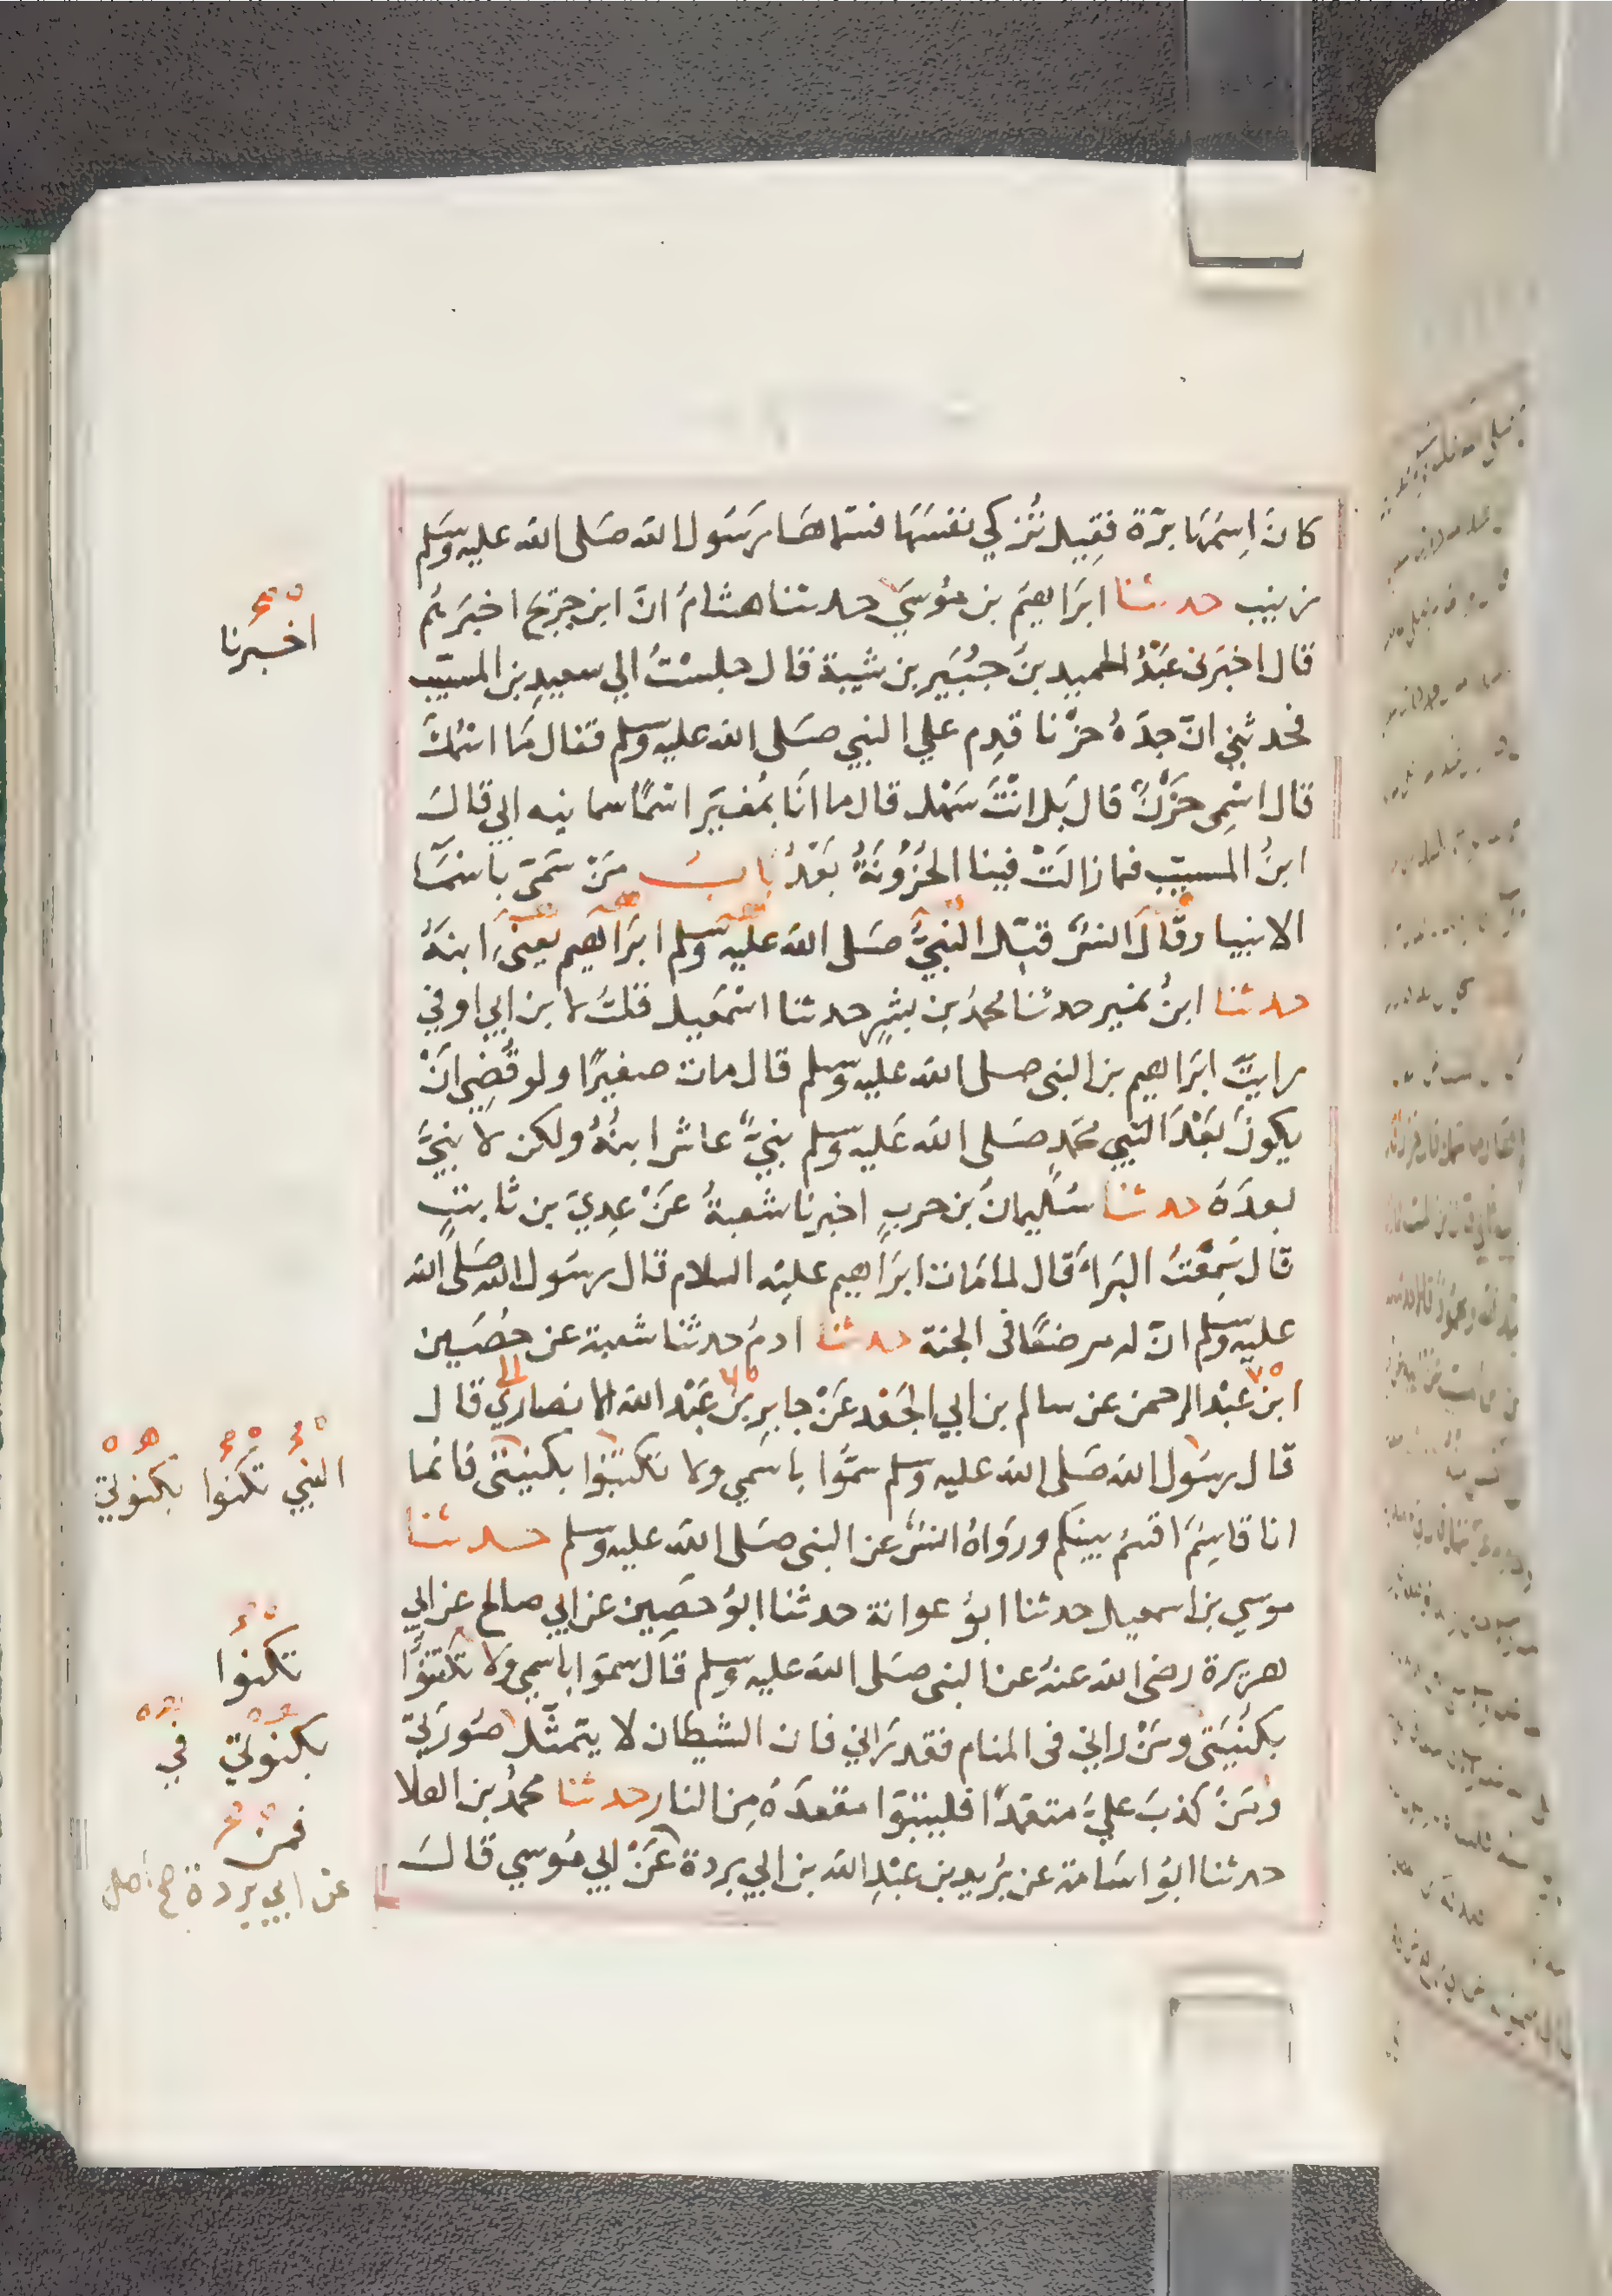 كانَ اِسمُهَا برّة فقِيل تُزكي نفسَهَا فسَمّاهَا رَسُول الله صَلى الله عليه وسَلم
زينب حدثنا ابرَاهيمَ بن مُوسَي حدثنا هشامُ انّ ابن جريج اخبَرَهُم
قال اخبرَنى عَبْدُ الحميد بنُ جُبَير بن شيبة قال جلسْتُ الي سعيدِ بن المسيّب
فحدثني انّ جدّهُ حزْنا قدِم علي النبي صَلى الله عليه وسلم فقال مَا اسْمُكَ
قال اسْمِى حَزْنٌ قال بَل انْتَ سَهْل قال ما انَا بمُغيّر اسْمًا سمانيه ابي قالَ
ابنُ المسيب فما زالتْ فينا الحُزُونَةُ بَعْدُ بابُ مَنْ سَمّى باسْمَا
الانبيا وقَالَ انسٌ قبّل النبيُّ صَلى الله عليه وسلم ابرَاهيم يعنى ابنهُ
حدثنا ابنُ نمير حدثنا محمدُ بن بشرٍ حدثنا اسْمعيل قلتُ لابن ابي اوفي
رايتَ ابرَاهيم بن النبى صلى الله عليه وسلم قال مات صغيرًا ولو قُضِيَ انْ
يكونَ بَعْدَ النبي محمّدٍ صَلى الله عَليه وسلم نبيٌّ عاش ابنُهُ ولكن لا نبيَّ
بعدَهُ حدثنا سُليمانُ بن حربٍ اخبرنا شعبةُ عَنْ عِديّ بن ثابتٍ
قال سَمعْتُ البرَاءَ قال لما مَات ابرَاهيم عليْه السلام قال رسُول الله صَلى الله
عليه وسَلم انّ له مرضعًا فى الجنة حدثنا ادمُ حدثنا شعبة عن حُصَين
ابن عبْد الرحمن عن سالم بن ابي الجَعْد عَنْ جابِر بن عَبْد الله الانصاري قال
قال رسُول الله صَلى الله عليه وسلم سمُّوا باسْمي ولا تكتنُوا بكنيَتى فانما
انا قاسِمٌ اقسمُ بينكم ورَوَاهُ انسٌ عن النبى صَلى الله عليه وسلم حدثنا
موسي بن اسمعيل حدثنا ابوُ عوانة حدثنا ابوُ حَصِين عن ابي صالح عن ابي
هريرة رضى الله عنهُ عن النبى صَلى الله عليه وسلم قال سموا باسمي وَلا تكتنُوا
بكنْيَتى ومَنْ راني فى المنام فقد رَاني فان الشيطان لا يتمثّل صُورَتي
ومَنْ كَذبَ عليَّ متعمّدًا فليتبوّا مقعدَهُ مِن النار حدثنا محمدُ بن العلا
حدثنا ابوُ اسَامة عن بُريد بن عبْدِ الله بن ابي بردة عَنْ ابي مُوسي قالَ
اخبرنا
النبيُّ تكنوا بكنوتي
تكنوا
بكنوتي في
فمن
عن ابي بردة صح أصل